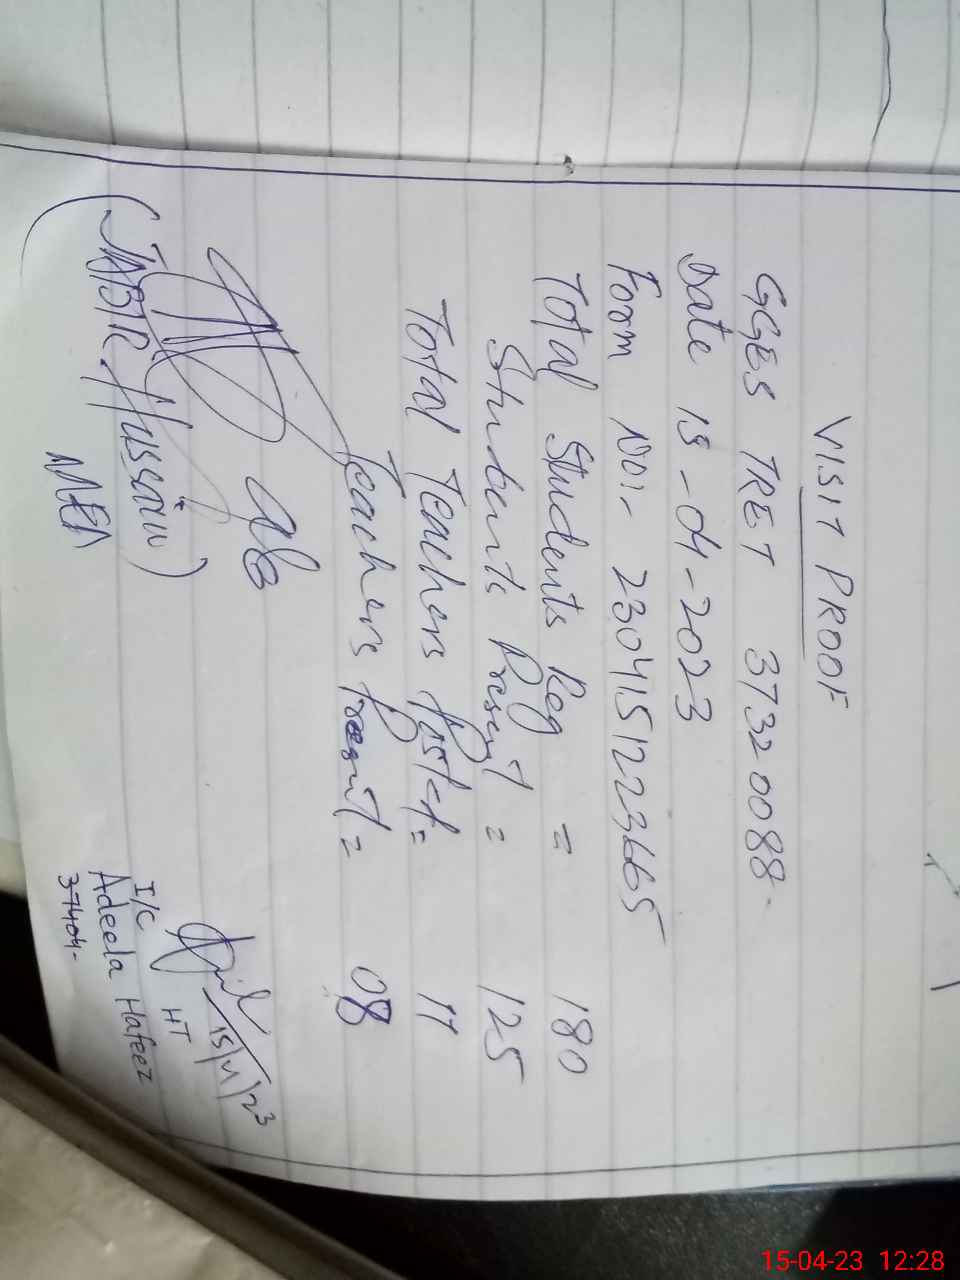 VISIT PROOF
GGES TRET 37320088-
Date 15-04-2023
Form No:- 2304151223665
Total Students Reg = 180
Students Present = 125
Total Teachers Posted = 11
Teachers Present = 08
(JABIR Hussain)
MEA
15/4/23
HT
I/C
Adeela Hafeez
37404-
15-04-23 12:28